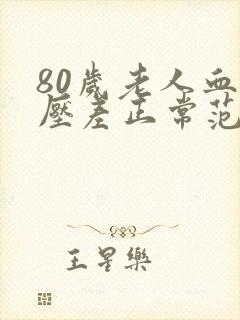 80歲老人血
壓差正常范
王星樂